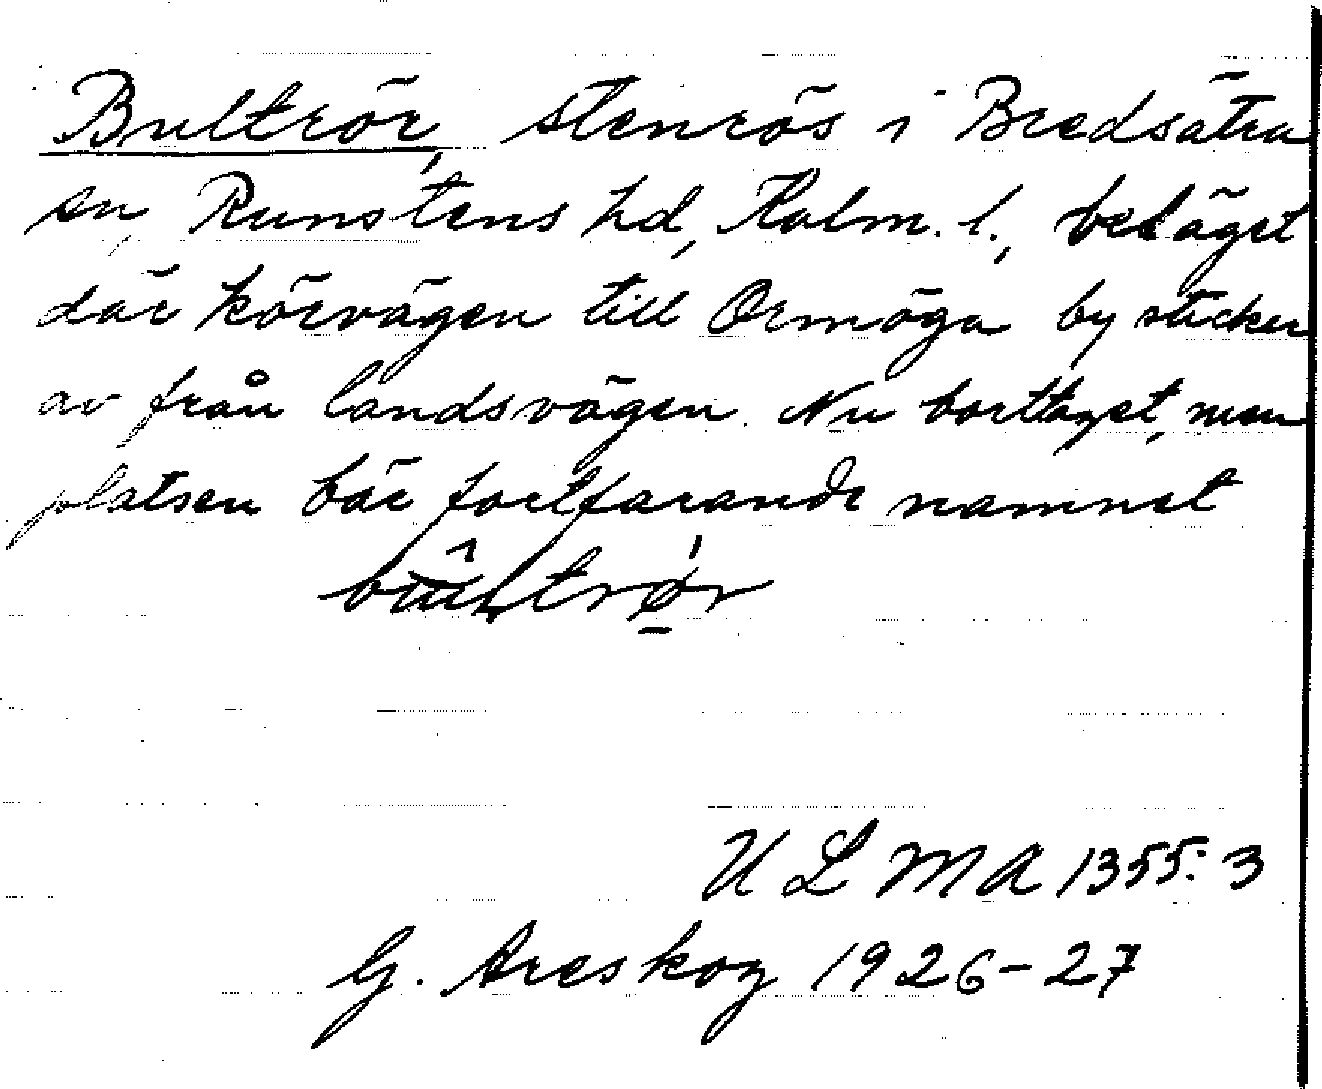 Bultrör, stenrös i Bredsätra
sn, Runstens hd, Kalm. l., beläget
där körvägen till Ormöga by sticker
av från landsvägen. Nu borttaget, men
platsen bär fortfarande namnet
U L M A 1355:3
G. Areskog 1926-27